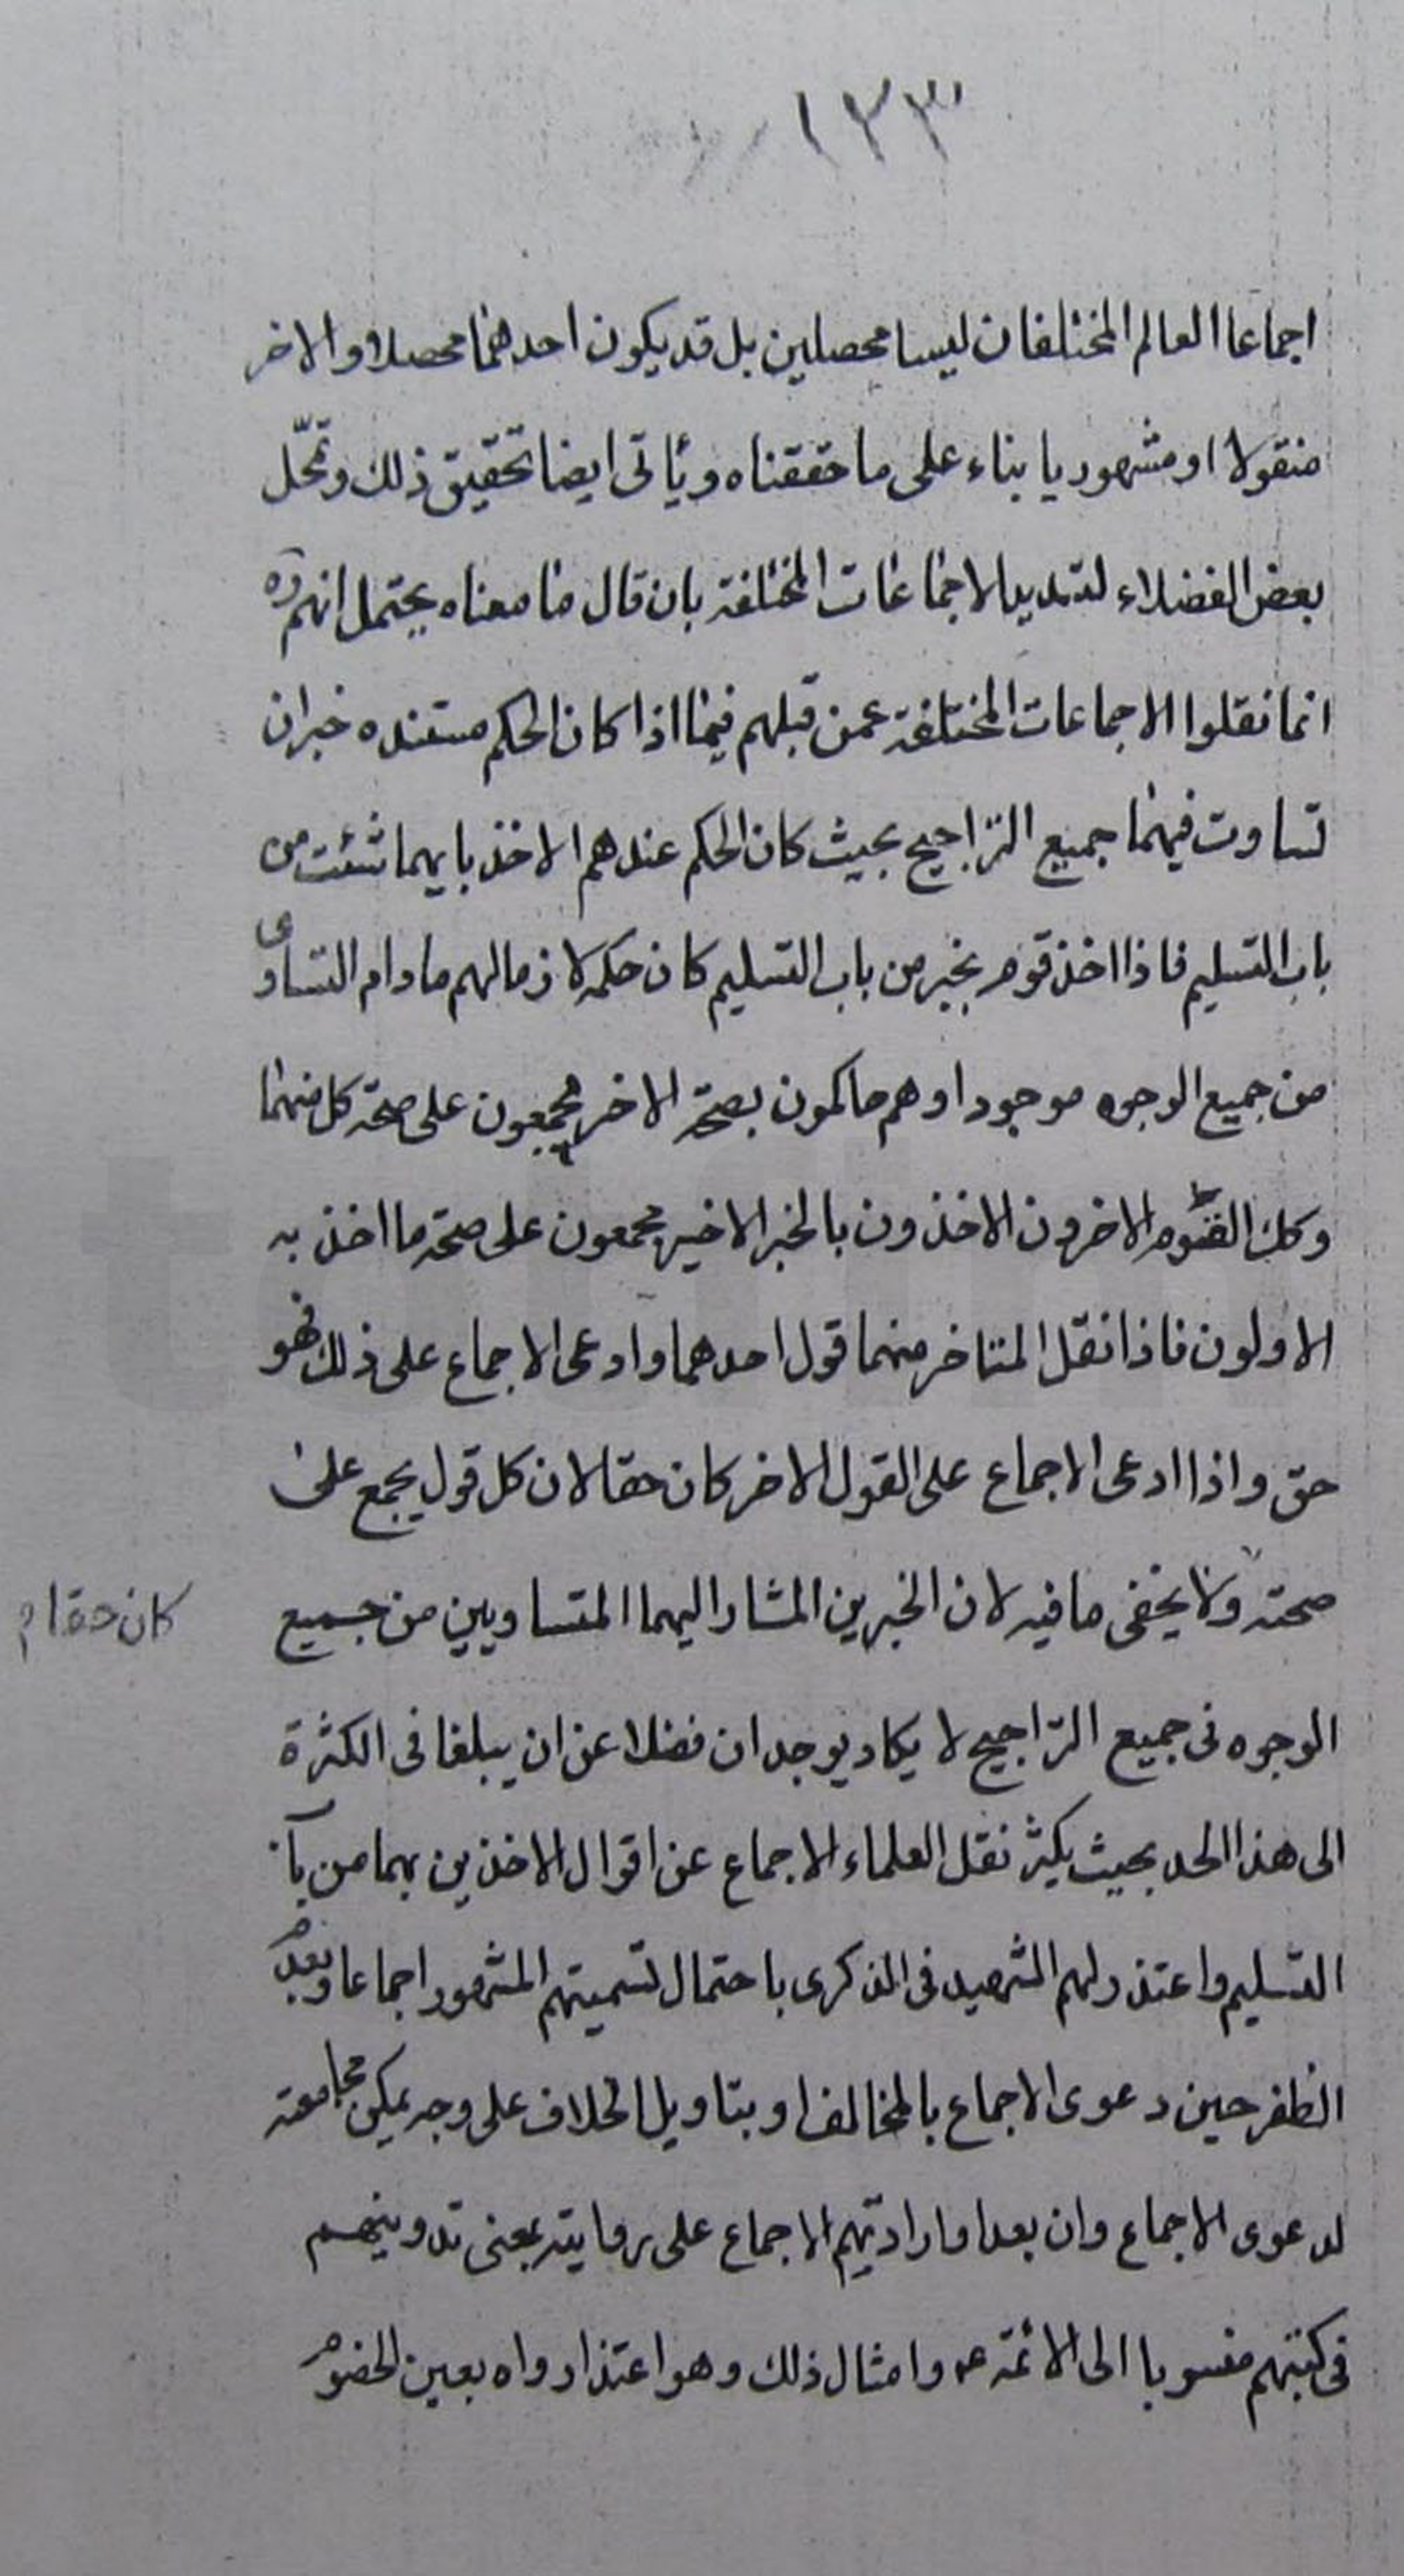 ١٣٣
اجماعا العالم المختلفان ليسا محصلين بل قد يكون احدهما محصلا والاخر
منقولا او مشهوريا بناء على ما حققناه ويأتى ايضا تحقيق ذلك وتمحّل
بعض الفضلاء لتسديد الاجماعات المختلفة بان قال ما معناه يحتمل انهم ره
انما نقلوا الاجماعات المختلفة عمن قبلهم فيما اذا كان الحكم مستنده خبران
تساوت فيهما جميع التراجيح بحيث كان الحكم عندهم الاخذ بايهما شئت من
باب التسليم فاذا اخذ قوم بخبر من باب التسليم كان حكمه لازما لهم مادام التساوى
من جميع الوجوه موجودا وهم حاكمون بصحة الاخر مجمعون على صحة كل منهما
وكك القوم الاخرون الاخذون بالخبر الاخير مجمعون على صحة ما اخذ به
الاولون فاذا نقل المتاخر منهما قول احدهما وادعى الاجماع على ذلك فهو
حق واذا ادعى الاجماع على القول الاخر كان حقا لان كل قول يجمع على
صحته ولا يخفى ما فيه لان الخبرين المشار اليهما المتساويين من جميع
كان حقا م
الوجوه فى جميع التراجيح لا يكاد يوجدان فضلا عن ان يبلغا فى الكثرة
الى هذا الحد بحيث يكثر نقل العلماء الاجماع عن اقوال الاخذين بهما من باب
التسليم واعتذر لهم الشهيد فى الذكرى باحتمال تسميتهم المشهور اجماعا وبعدم
الظفر حين دعوى الاجماع بالمخالف او بتاويل الخلاف على وجه يمكن مجامعته
لدعوى الاجماع وان بعد او ارادتهم الاجماع على روايته بمعنى تدوينهم
فى كتبهم منسوبا الى الائمة ع وامثال ذلك وهو اعتذار واه بعين الخصوم